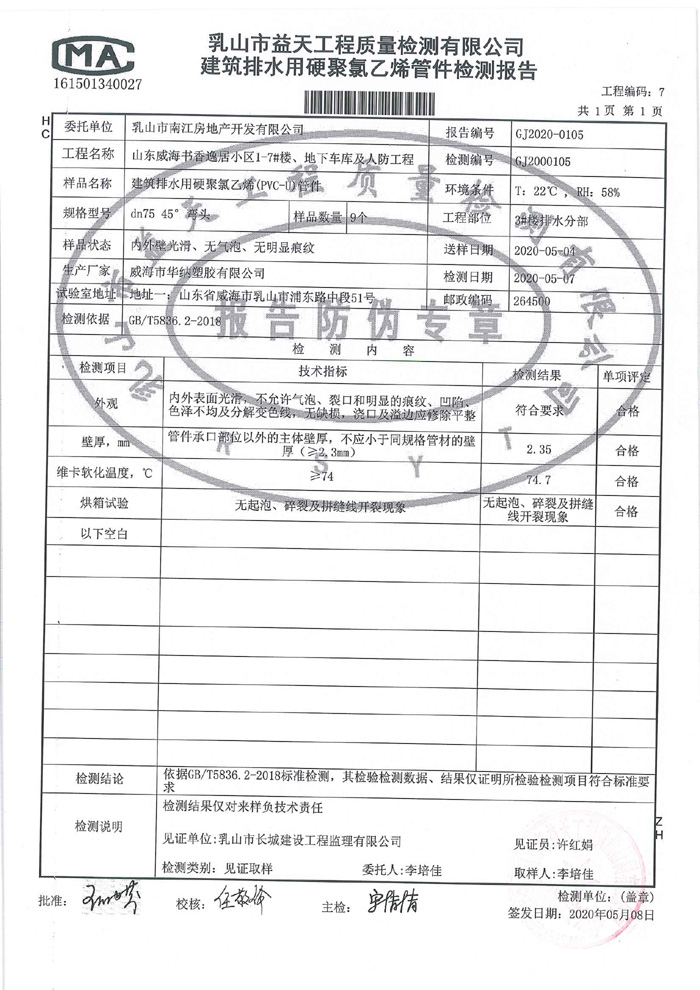 MA
161501340027
乳山市益天工程质量检测有限公司
建筑排水用硬聚氯乙烯管件检测报告
工程编码：7
共 1页 第 1页
HC
委托单位 乳山市南江房地产开发有限公司 报告编号 GJ2020-0105
工程名称 山东威海书香逸居小区1-7#楼、地下车库及人防工程 检测编号 GJ2000105
样品名称 建筑排水用硬聚氯乙烯(PVC-U)管件 环境条件 T: 22℃ , RH: 58%
规格型号 dn75 45°弯头 样品数量 9个 工程部位 3#楼排水分部
样品状态 内外壁光滑、无气泡、无明显痕纹 送样日期 2020-05-04
生产厂家 威海市华纳塑胶有限公司 检测日期 2020-05-07
试验室地址 地址一：山东省威海市乳山市浦东路中段51号 邮政编码 264500
检测依据 GB/T5836.2-2018
乳山市益天工程质量检测有限公司
报告防伪专章
R S Y T
检 测 内 容
检测项目 技术指标 检测结果 单项评定
外观 内外表面光滑，不允许气泡、裂口和明显的痕纹、凹陷、
色泽不均及分解变色线，无缺损，浇口及溢边应修除平整 符合要求 合格
壁厚，mm 管件承口部位以外的主体壁厚，不应小于同规格管材的壁
厚（≥2.3mm） 2.35 合格
维卡软化温度，℃ ≥74 74.7 合格
烘箱试验 无起泡、碎裂及拼缝线开裂现象 无起泡、碎裂及拼缝
线开裂现象 合格
以下空白
检测结论 依据GB/T5836.2-2018标准检测，其检验检测数据、结果仅证明所检验检测项目符合标准要
求
检测说明 检测结果仅对来样负技术责任
见证单位:乳山市长城建设工程监理有限公司 见证员:许红娟
检测类别: 见证取样 委托人:李培佳 取样人:李培佳
ZH
批准: 校核: 主检: 检测单位: (盖章)
签发日期: 2020年05月08日